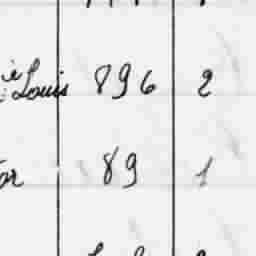 Louis 896 2
or 89 1